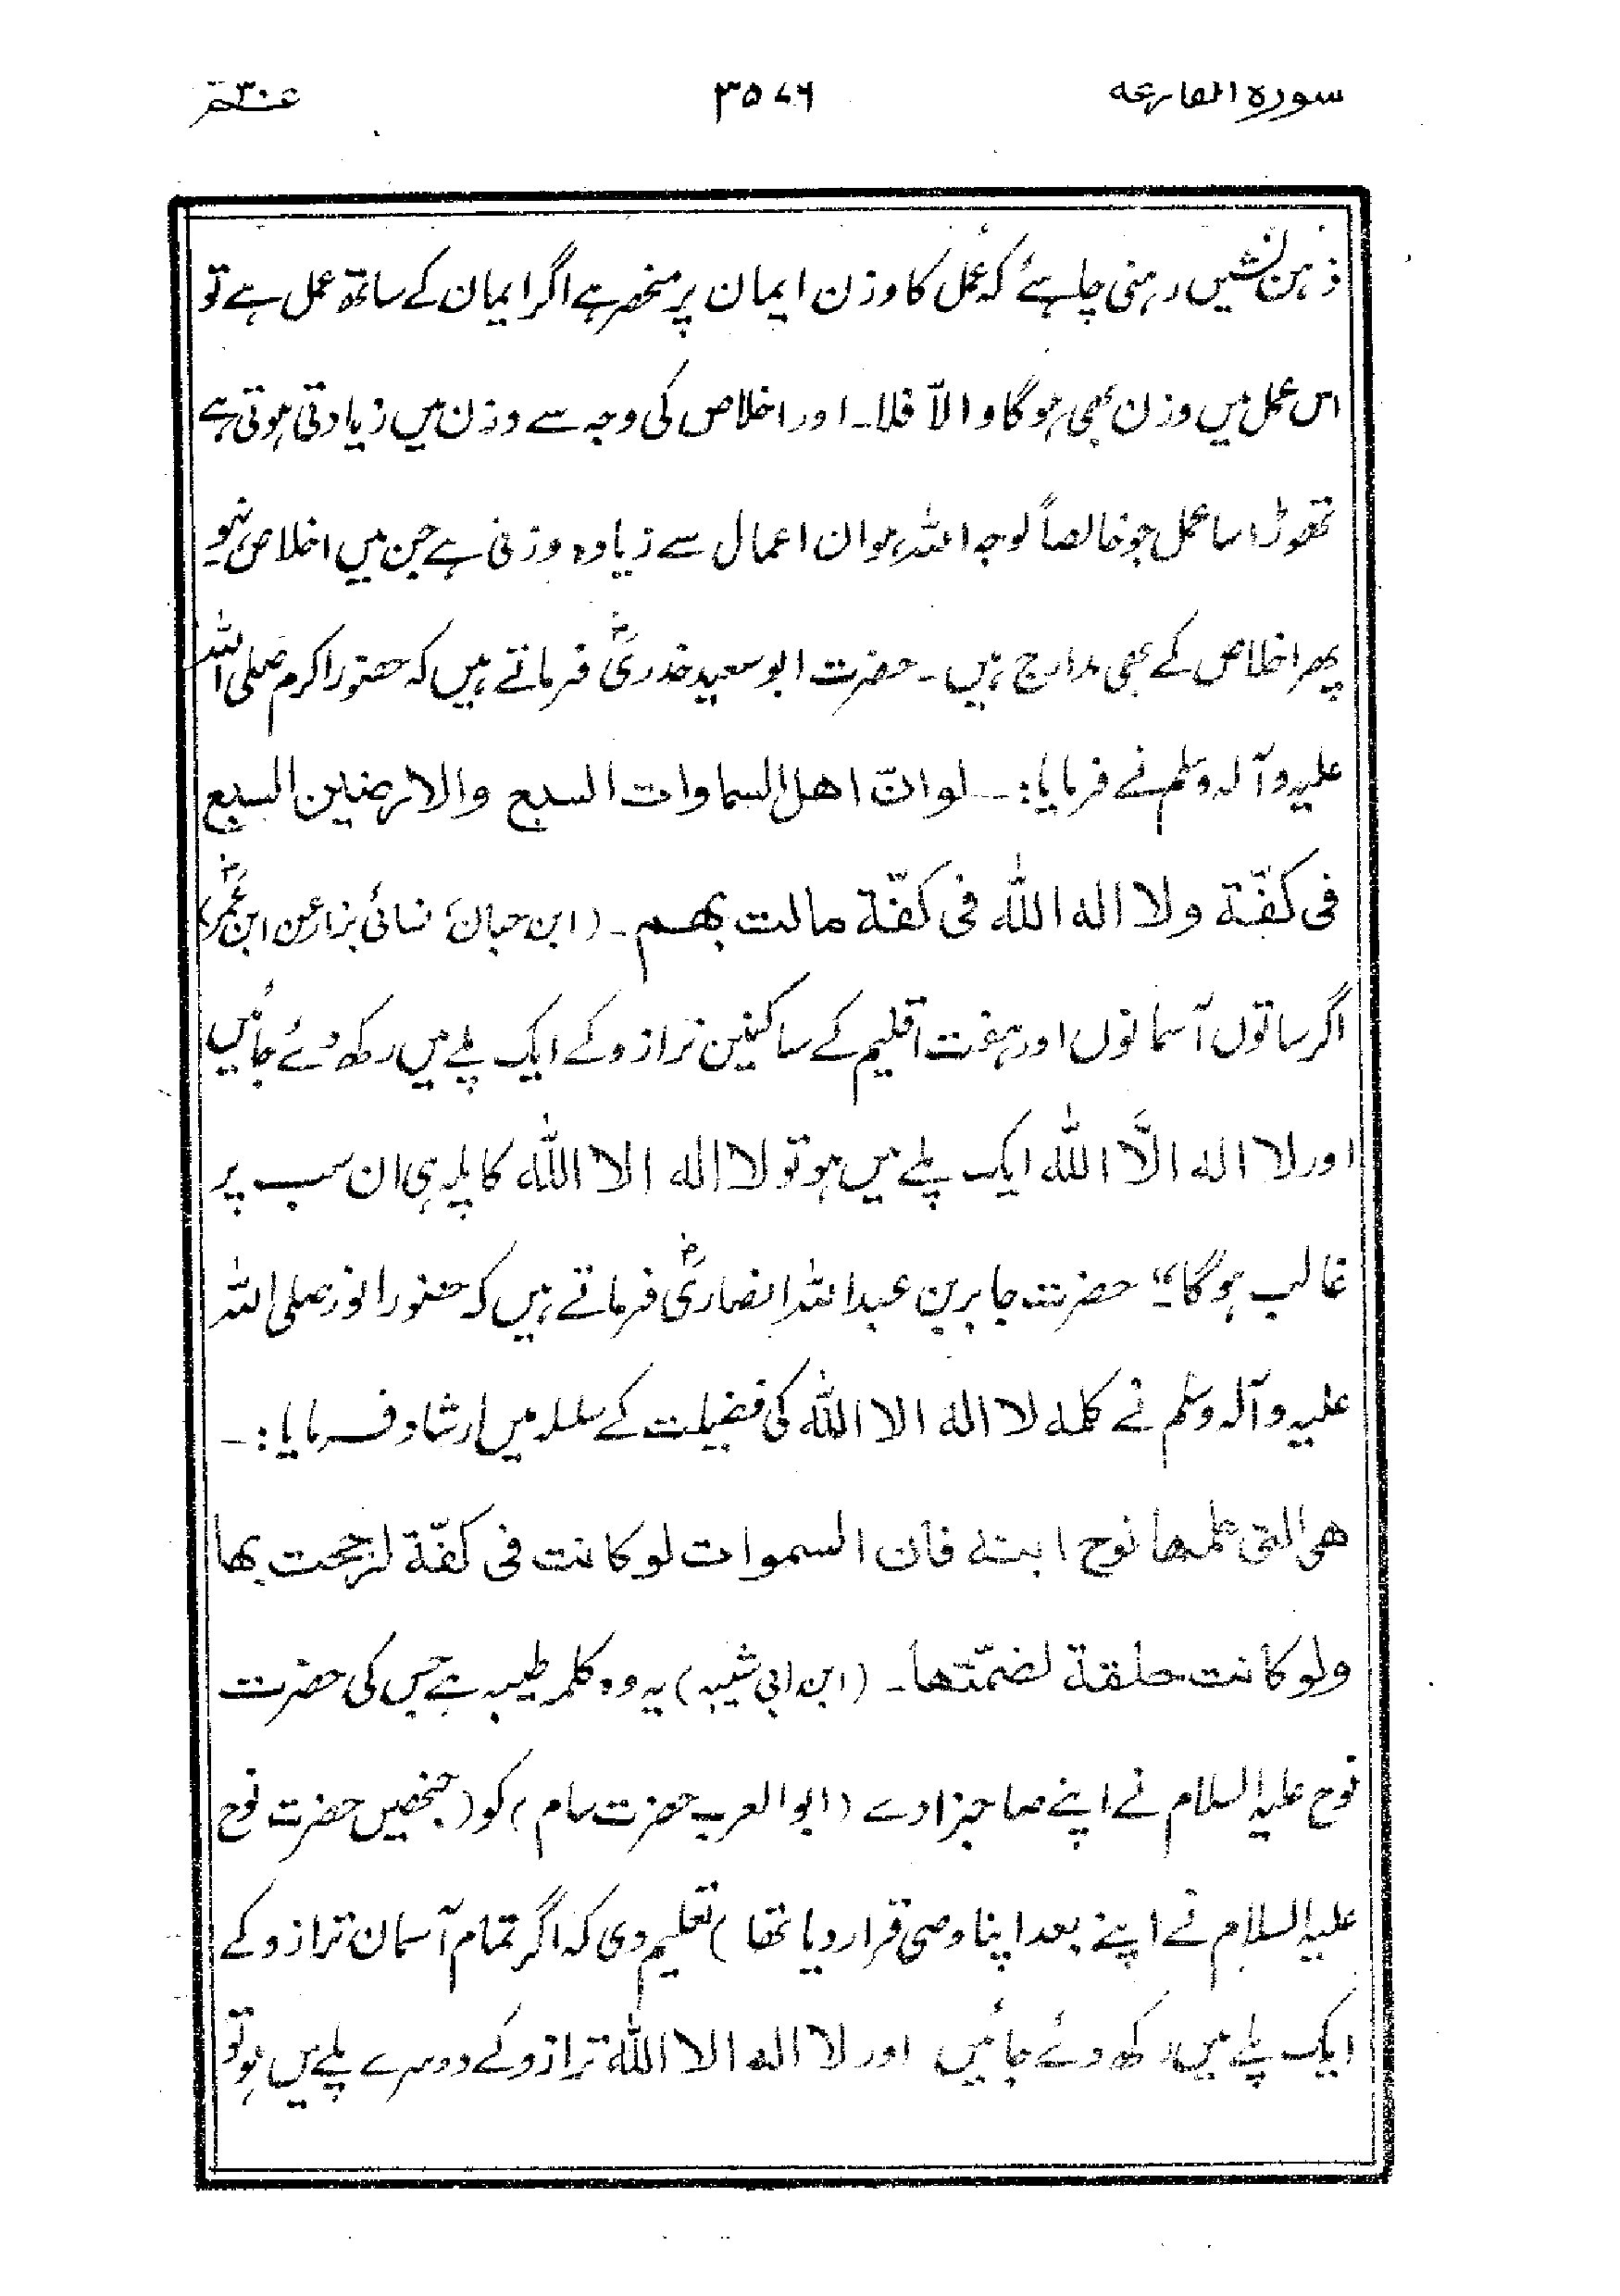 سورہ القارعہ ۳۵۷۶ عم۳۰
ذہن نشیں رہنی چاہئے کہ عمل کا وزن ایمان پر منحصر ہے اگر ایمان کے ساتھ عمل ہے تو
اس عمل میں وزن بھی ہوگا والّا فلا۔ اور اخلاص کی وجہ سے وزن میں زیادتی ہوتی ہے
تھوڑا سا عمل جو خالصاً لوجہ اللہ ہو ان اعمال سے زیادہ وزنی ہے جن میں اخلاص نہ ہو
پھر اخلاص کے بھی مدارج ہیں۔ حضرت ابو سعید خدریؓ فرماتے ہیں کہ حضور اکرم صلی اللہ
علیہ وآلہ وسلم نے فرمایا:۔ لو انّ اهل السماوات السبع والارضين السبع
فى كفّة ولا اله الله فى كفّة مالت بهم۔ (ابن حبان، نسائی بزار عن ابن عمرؓ)
اگر ساتوں آسمانوں اور ہفت اقلیم کے ساکنین ترازو کے ایک پلے میں رکھ دئے جائیں
اور لا الہ الّا اللہ ایک پلے میں ہو تو لا الہ الا اللہ کا پلہ ہی ان سب پر
غالب ہوگا“۔ حضرت جابر بن عبداللہ انصاریؓ فرماتے ہیں کہ حضور انور صلی اللہ
علیہ وآلہ وسلم نے کلمہ لا الہ الا اللہ کی فضیلت کے سلسلہ میں ارشاد فرمایا:۔
هى التى علمها نوح ابنه فان السموات لو كانت فى كفّة لرجحت بها
ولو كانت حلقة لضمّتها۔ (ابن ابی شیبہ) یہ وہ کلمہ طیبہ ہے جس کی حضرت
نوح علیہ السلام نے اپنے صاحبزادے (ابو العرب حضرت سام) کو (جنھیں حضرت نوح
علیہ السلام نے اپنے بعد اپنا وصی قرار دیا تھا) تعلیم دی کہ اگر تمام آسمان ترازو کے
ایک پلے میں رکھ دئے جائیں اور لا الہ الا اللہ ترازو کے دوسرے پلے میں ہو تو